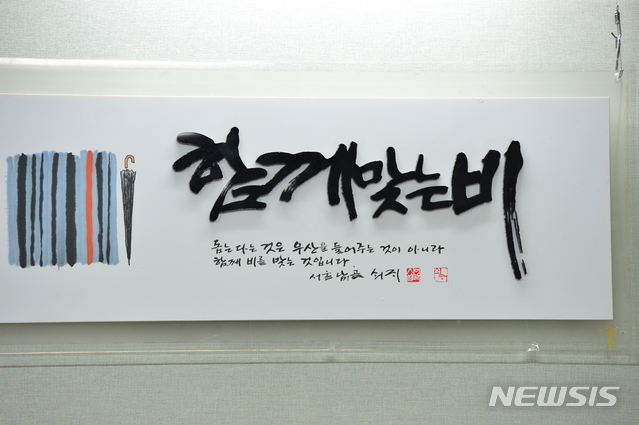 함께맞는비
돕는다는 것은 우산을 들어주는 것이 아니라
함께 비를 맞는 것입니다
쇠귀
NEWSIS